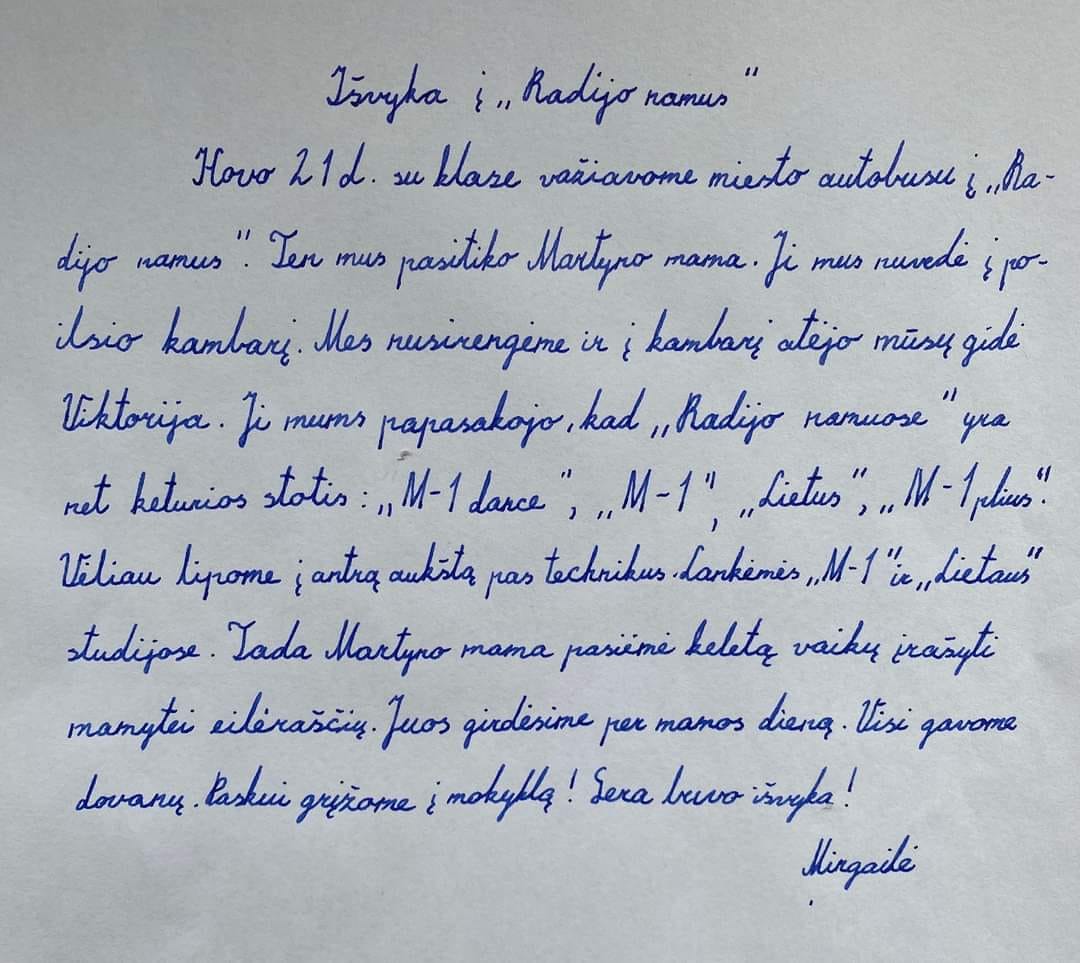 Išvyka į „Radijo namus"
Kovo 21 d. su klase važiavome miesto autobusu į „Ra-
dijo namus". Ten mus pasitiko Martyno mama. Ji mus nuvedė į po-
ilsio kambarį. Mes nusirengėme ir į kambarį atėjo mūsų gidė
Viktorija. Ji mums papasakojo, kad „Radijo namuose" yra
net keturios stotis: „M-1 dance", „M-1", „Lietus", „M-1 plius".
Vėliau lipome į antrą aukštą pas technikus. Lankėmės „M-1" ir „Lietaus"
studijose. Tada Martyno mama pasiėmė keletą vaikų įrašyti
mamytei eilėraščių. Juos girdėsime per mamos dieną. Visi gavome
dovanų. Paskui grįžome į mokyklą! Gera buvo išvyka!
Mirgailė